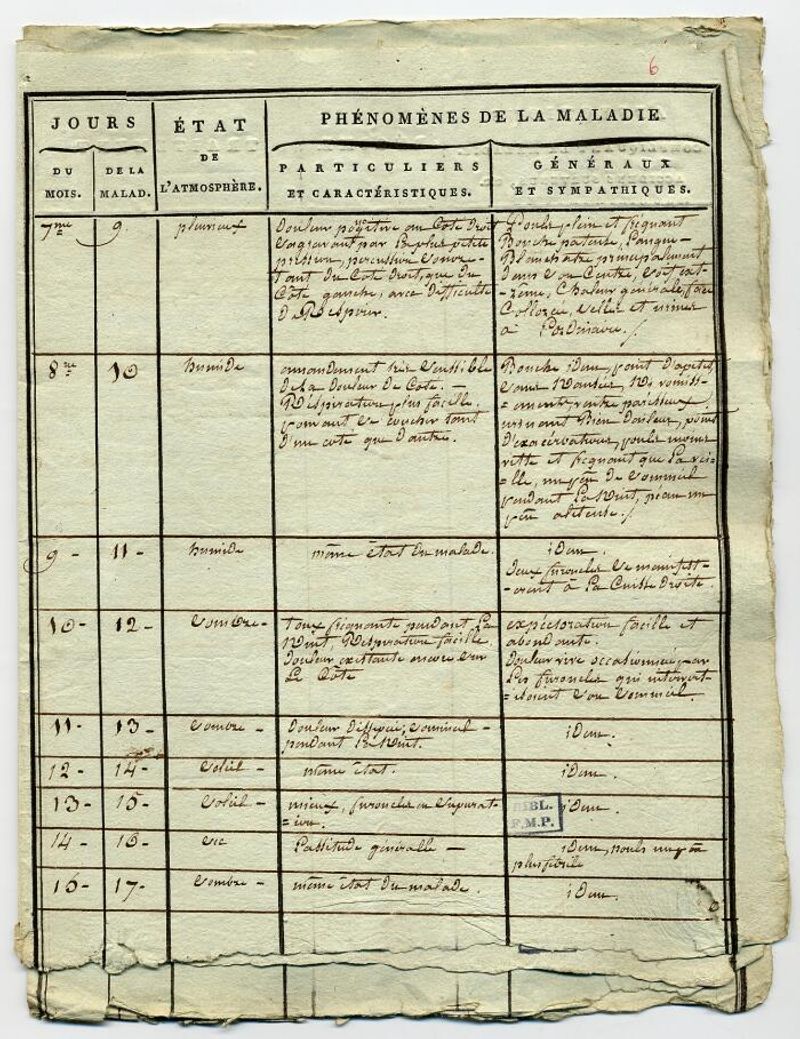 6
JOURS
DU MOIS.
DE LA MALAD.
ÉTAT
DE
L'ATMOSPHÈRE.
PHÉNOMÈNES DE LA MALADIE
PARTICULIERS
ET CARACTÉRISTIQUES.
GÉNÉRAUX
ET SYMPATHIQUES.
7me
9
pluvieux
Douleur pogitive au Cote Droit
S'agravant par la plus petite
pression, percussive Souvre-
tant du Cote Droit, que du
Côte gauche, avec difficulte
de Respirer.
Pouls plein et fréquant
Bouche pateuse, Langue
Blanchatre principalement
dans Son Centre, Soif ext-
=rême, Chaleur générale, face
Collorée, Selles et urines
à L'ordinaire.
8me
10
humide
amandement très Sensible
de La Douleur de Cote. —
Réspiration plus facille.
pouvant Se Coucher tant
d'un cote que d'autre.
Bouche idem, point d'apetit
Sans Nausées, Ni vomiss-
=ements, ventre paresseux
urinant Bien d'ailleur, point
d'exacérbations, pouls moins
vitte et fréquant que La vei-
=lle, un peu de Sommeil
pendant La Nuit, peau un
peu aliteuse.
9 -
11 -
humide
même état du malade.
idem.
deux furoncles Se manifest-
=erent à La Cuisse Droite.
10 -
12 -
Sombre -
toux fréquante pendant La
Nuit, Réspiration facille.
Douleur existante encore Sur
Le Côte
expéctoration facille et
abondante.
Douleur vive occationnée par
Les furoncles qui interrom-
Son Sommeil.
11 -
13 -
Sombre -
Douleur dissipée, Sommeil -
pendant La Nuit.
idem.
12 -
14 -
Soleil -
même état.
idem.
13 -
15 -
Soleil -
mieux, furoncles en Supurat-
=ion.
idem.
BIBL.
F.M.P.
14 -
16 -
Sec
Lassitude généralle —
idem, pouls un peu
plus febrile
16 -
17 -
Sombre -
même état du malade.
idem.